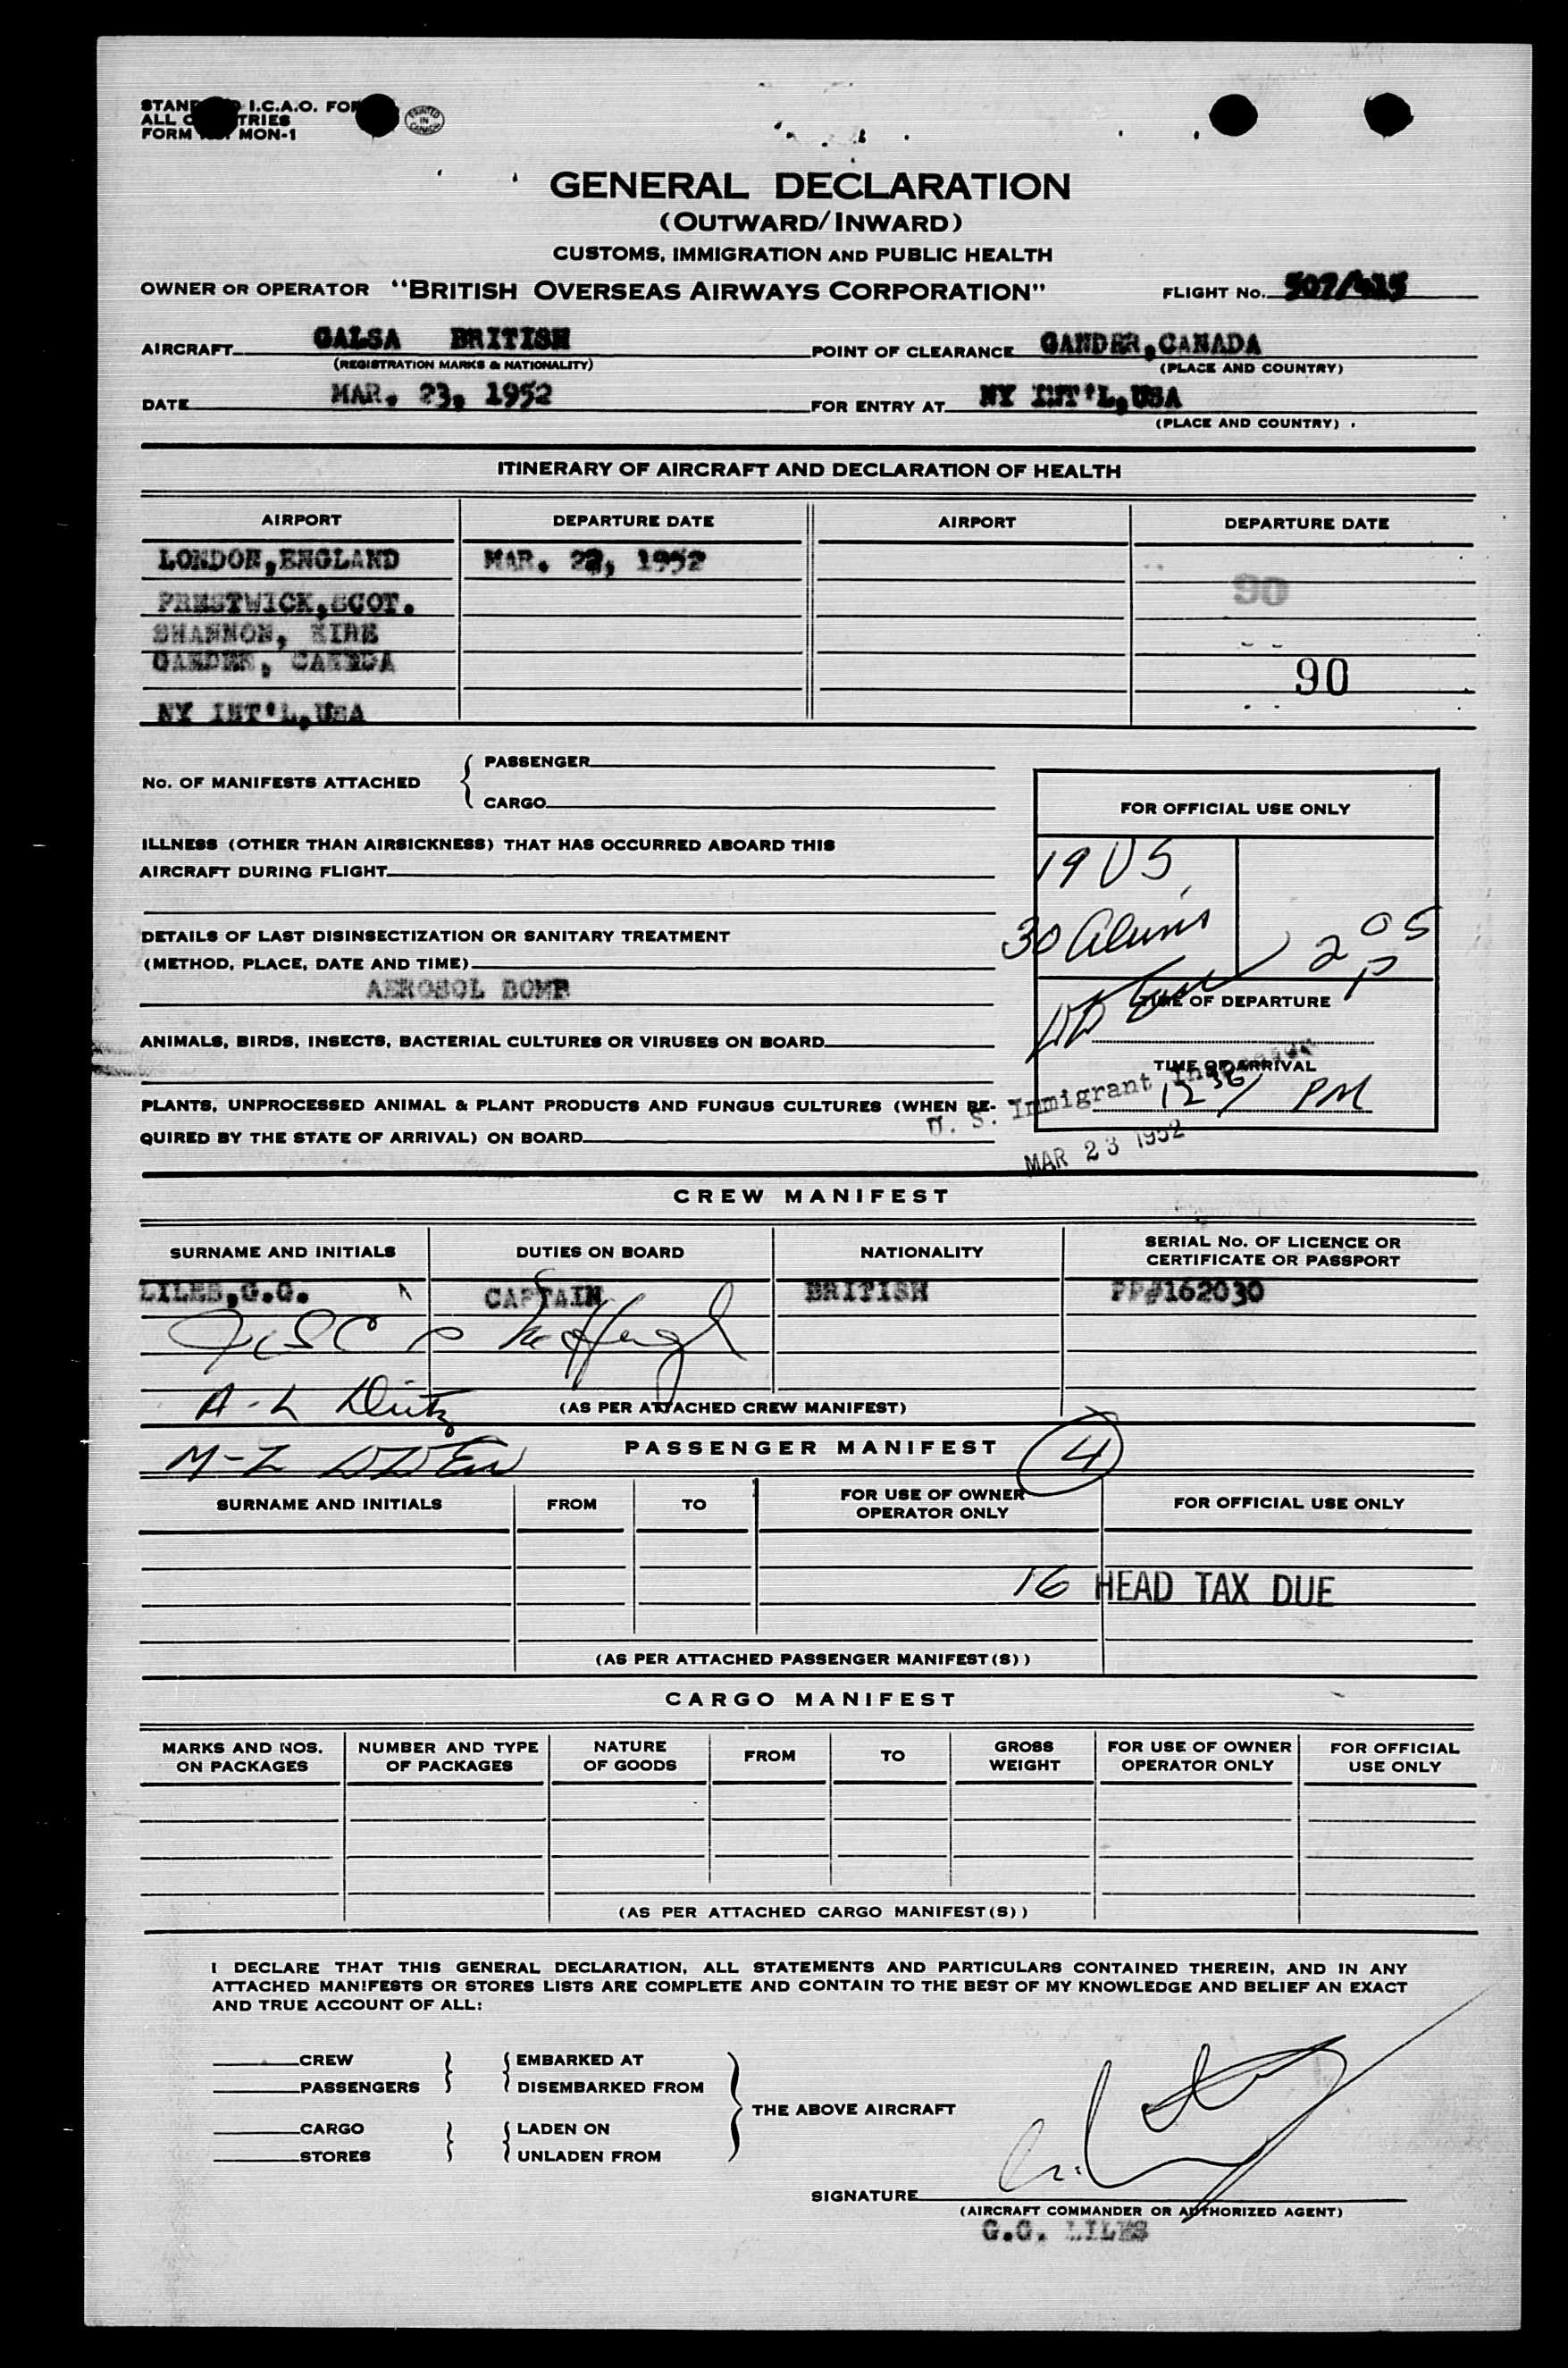 I.C.A.O.
ALL
FORM MON-1
PRINTED IN CANADA
GENERAL DECLARATION
(OUTWARD/INWARD)
CUSTOMS, IMMIGRATION AND PUBLIC HEALTH
OWNER OR OPERATOR "BRITISH OVERSEAS AIRWAYS CORPORATION" FLIGHT No.
AIRCRAFT GALSA BRITISH POINT OF CLEARANCE GANDER, CANADA
(REGISTRATION MARKS & NATIONALITY) (PLACE AND COUNTRY)
DATE MAR. 23, 1952 FOR ENTRY AT NY INT'L, USA
(PLACE AND COUNTRY)
ITINERARY OF AIRCRAFT AND DECLARATION OF HEALTH
AIRPORT DEPARTURE DATE AIRPORT DEPARTURE DATE
LONDON, ENGLAND MAR. 22, 1952
PRESTWICK, SCOT. 90
SHANNON, EIRE
GANDER, CANADA 90
NY INT'L, USA
No. OF MANIFESTS ATTACHED { PASSENGER
CARGO
FOR OFFICIAL USE ONLY
ILLNESS (OTHER THAN AIRSICKNESS) THAT HAS OCCURRED ABOARD THIS
AIRCRAFT DURING FLIGHT
19 US
30 Aliens
2 05 P
DETAILS OF LAST DISINSECTIZATION OR SANITARY TREATMENT
(METHOD, PLACE, DATE AND TIME)
AEROSOL BOMB
TIME OF DEPARTURE
ANIMALS, BIRDS, INSECTS, BACTERIAL CULTURES OR VIRUSES ON BOARD
TIME OF ARRIVAL
12 36 PM
U. S. Immigrant Inspector
MAR 23 1952
PLANTS, UNPROCESSED ANIMAL & PLANT PRODUCTS AND FUNGUS CULTURES (WHEN RE-
QUIRED BY THE STATE OF ARRIVAL) ON BOARD
CREW MANIFEST
SURNAME AND INITIALS DUTIES ON BOARD NATIONALITY SERIAL No. OF LICENCE OR
CERTIFICATE OR PASSPORT
LILES, G.G. CAPTAIN BRITISH PP#162030
A-L
(AS PER ATTACHED CREW MANIFEST)
M-Z
PASSENGER MANIFEST 4
SURNAME AND INITIALS FROM TO FOR USE OF OWNER
OPERATOR ONLY FOR OFFICIAL USE ONLY
16 HEAD TAX DUE
(AS PER ATTACHED PASSENGER MANIFEST(S))
CARGO MANIFEST
MARKS AND NOS.
ON PACKAGES NUMBER AND TYPE
OF PACKAGES NATURE
OF GOODS FROM TO GROSS
WEIGHT FOR USE OF OWNER
OPERATOR ONLY FOR OFFICIAL
USE ONLY
(AS PER ATTACHED CARGO MANIFEST(S))
I DECLARE THAT THIS GENERAL DECLARATION, ALL STATEMENTS AND PARTICULARS CONTAINED THEREIN, AND IN ANY
ATTACHED MANIFESTS OR STORES LISTS ARE COMPLETE AND CONTAIN TO THE BEST OF MY KNOWLEDGE AND BELIEF AN EXACT
AND TRUE ACCOUNT OF ALL:
CREW } { EMBARKED AT
PASSENGERS DISEMBARKED FROM
} THE ABOVE AIRCRAFT
CARGO } { LADEN ON
STORES UNLADEN FROM
SIGNATURE
(AIRCRAFT COMMANDER OR AUTHORIZED AGENT)
G.G. LILES